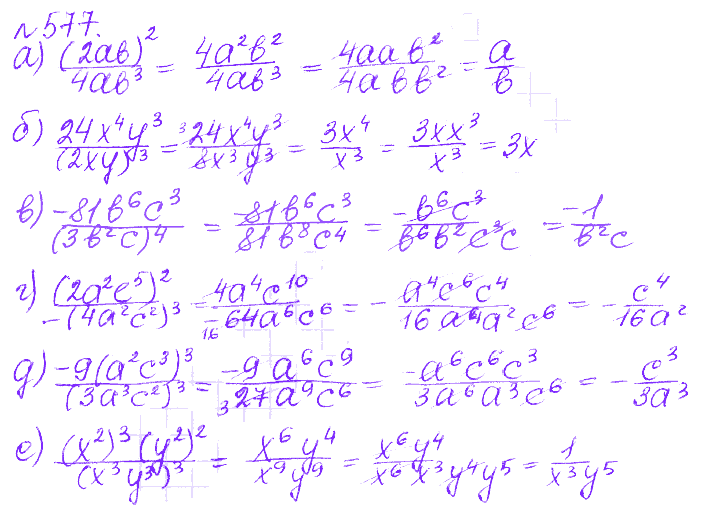 №577.
а) (2ab)²/4ab³ = 4a²b²/4ab³ = 4aab²/4abb² = a/b
б) 24x⁴y³/(2xy)³ = ³24x⁴y³/8x³y³ = 3x⁴/x³ = 3xx³/x³ = 3x
в) -81b⁶c³/(3b²c)⁴ = -81b⁶c³/81b⁸c⁴ = -b⁶c³/b⁶b²c³c = -1/b²c
г) (2a²c⁵)²/-(4a²c²)³ = 4a⁴c¹⁰/-₁₆64a⁶c⁶ = - a⁴c⁶c⁴/16a⁴a²c⁶ = - c⁴/16a²
д) -9(a²c³)³/(3a³c²)³ = -9a⁶c⁹/₃27a⁹c⁶ = -a⁶c⁶c³/3a⁶a³c⁶ = - c³/3a³
е) (x²)³(y²)²/(x³y³)³ = x⁶y⁴/x⁹y⁹ = x⁶y⁴/x⁶x³y⁴y⁵ = 1/x³y⁵